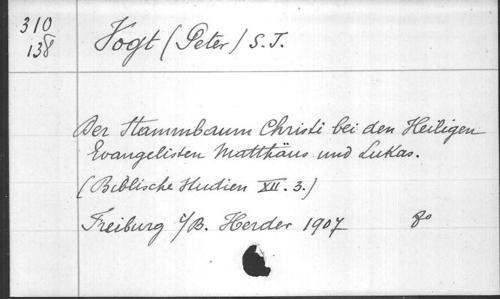 310
138
Vogt (Peter) S. J.
Der Stammbaum Christi bei den Heiligen
Evangelisten Matthäus und Lukas.
(Biblische Studien XII. 3.)
Freiburg i/B. Herder 1907 8o